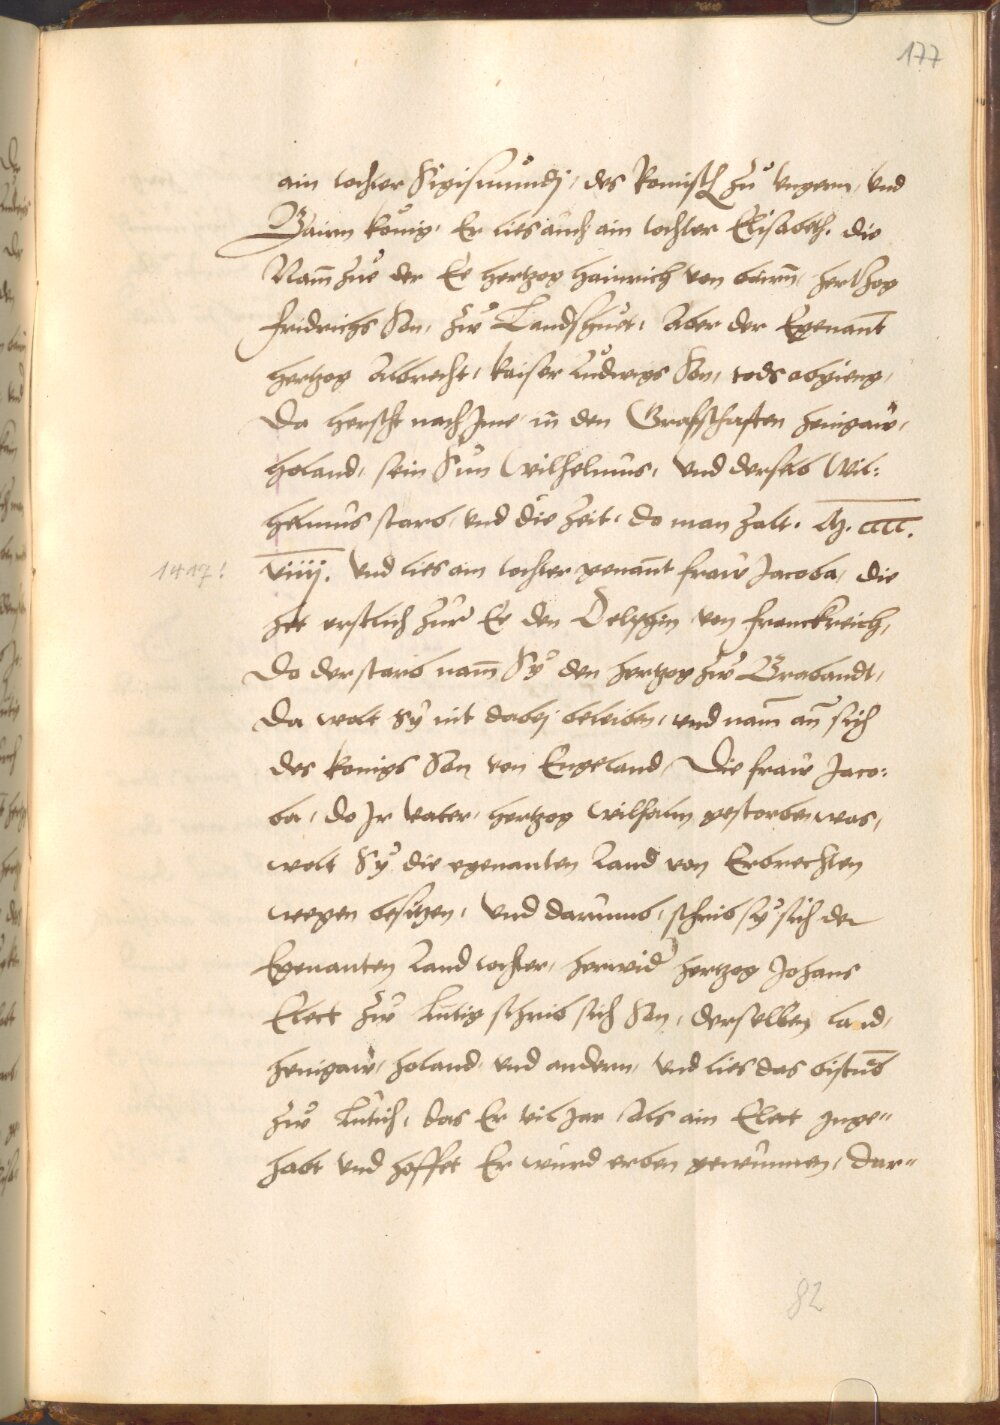 177
ain tochter Sigismundj, des Romisch zu Ungern, vnd
Bairn konig, Er lies auch ain tochter Elisabeth, die
Nam zue der Ee hertzog hainrich von bairn, hertzog
fridrichs Son, zw Landshuet, Aber der Egenant
hertzog Albrecht, kaiser Ludwigs Son, tods abgieng,
Do herscht nach Jme in den Grafschafften henigaw,
holand, sein Sun Wilhelmus, vnd derselb Wil:
helmus starb, vnd die Zeit, do man zalt. M. cccc.
viiij. Vnd lies ain tochter genant fraw Jacoba, die
1417!
het erstlich zur Ee den Delphin von franckreich,
Do der starb nam Sy den hertzog zw Brabandt,
Da wolt sy nit dabej beleiben, vnd nam an sich
des konigs Son von Engeland, Die fraw Jaco:
ba, do Jr vater, hertzog Wilhalm gestorben was,
wolt Sy die egenanten Land von Erbrechten
wegen besitzen, Vnd darumb, schrib sy sich der
Egenanten Land tochter, herwider hertzog Johans
Elect zw Lutig schrib sich Son, derselben land,
henigaw, holand, vnd andern, vnd lies das bistumb
zw Lutich, das Er vil jar als ain Elect Jnge"
habt vnd hoffet Er wurd erben gewinnen, Dar"
82